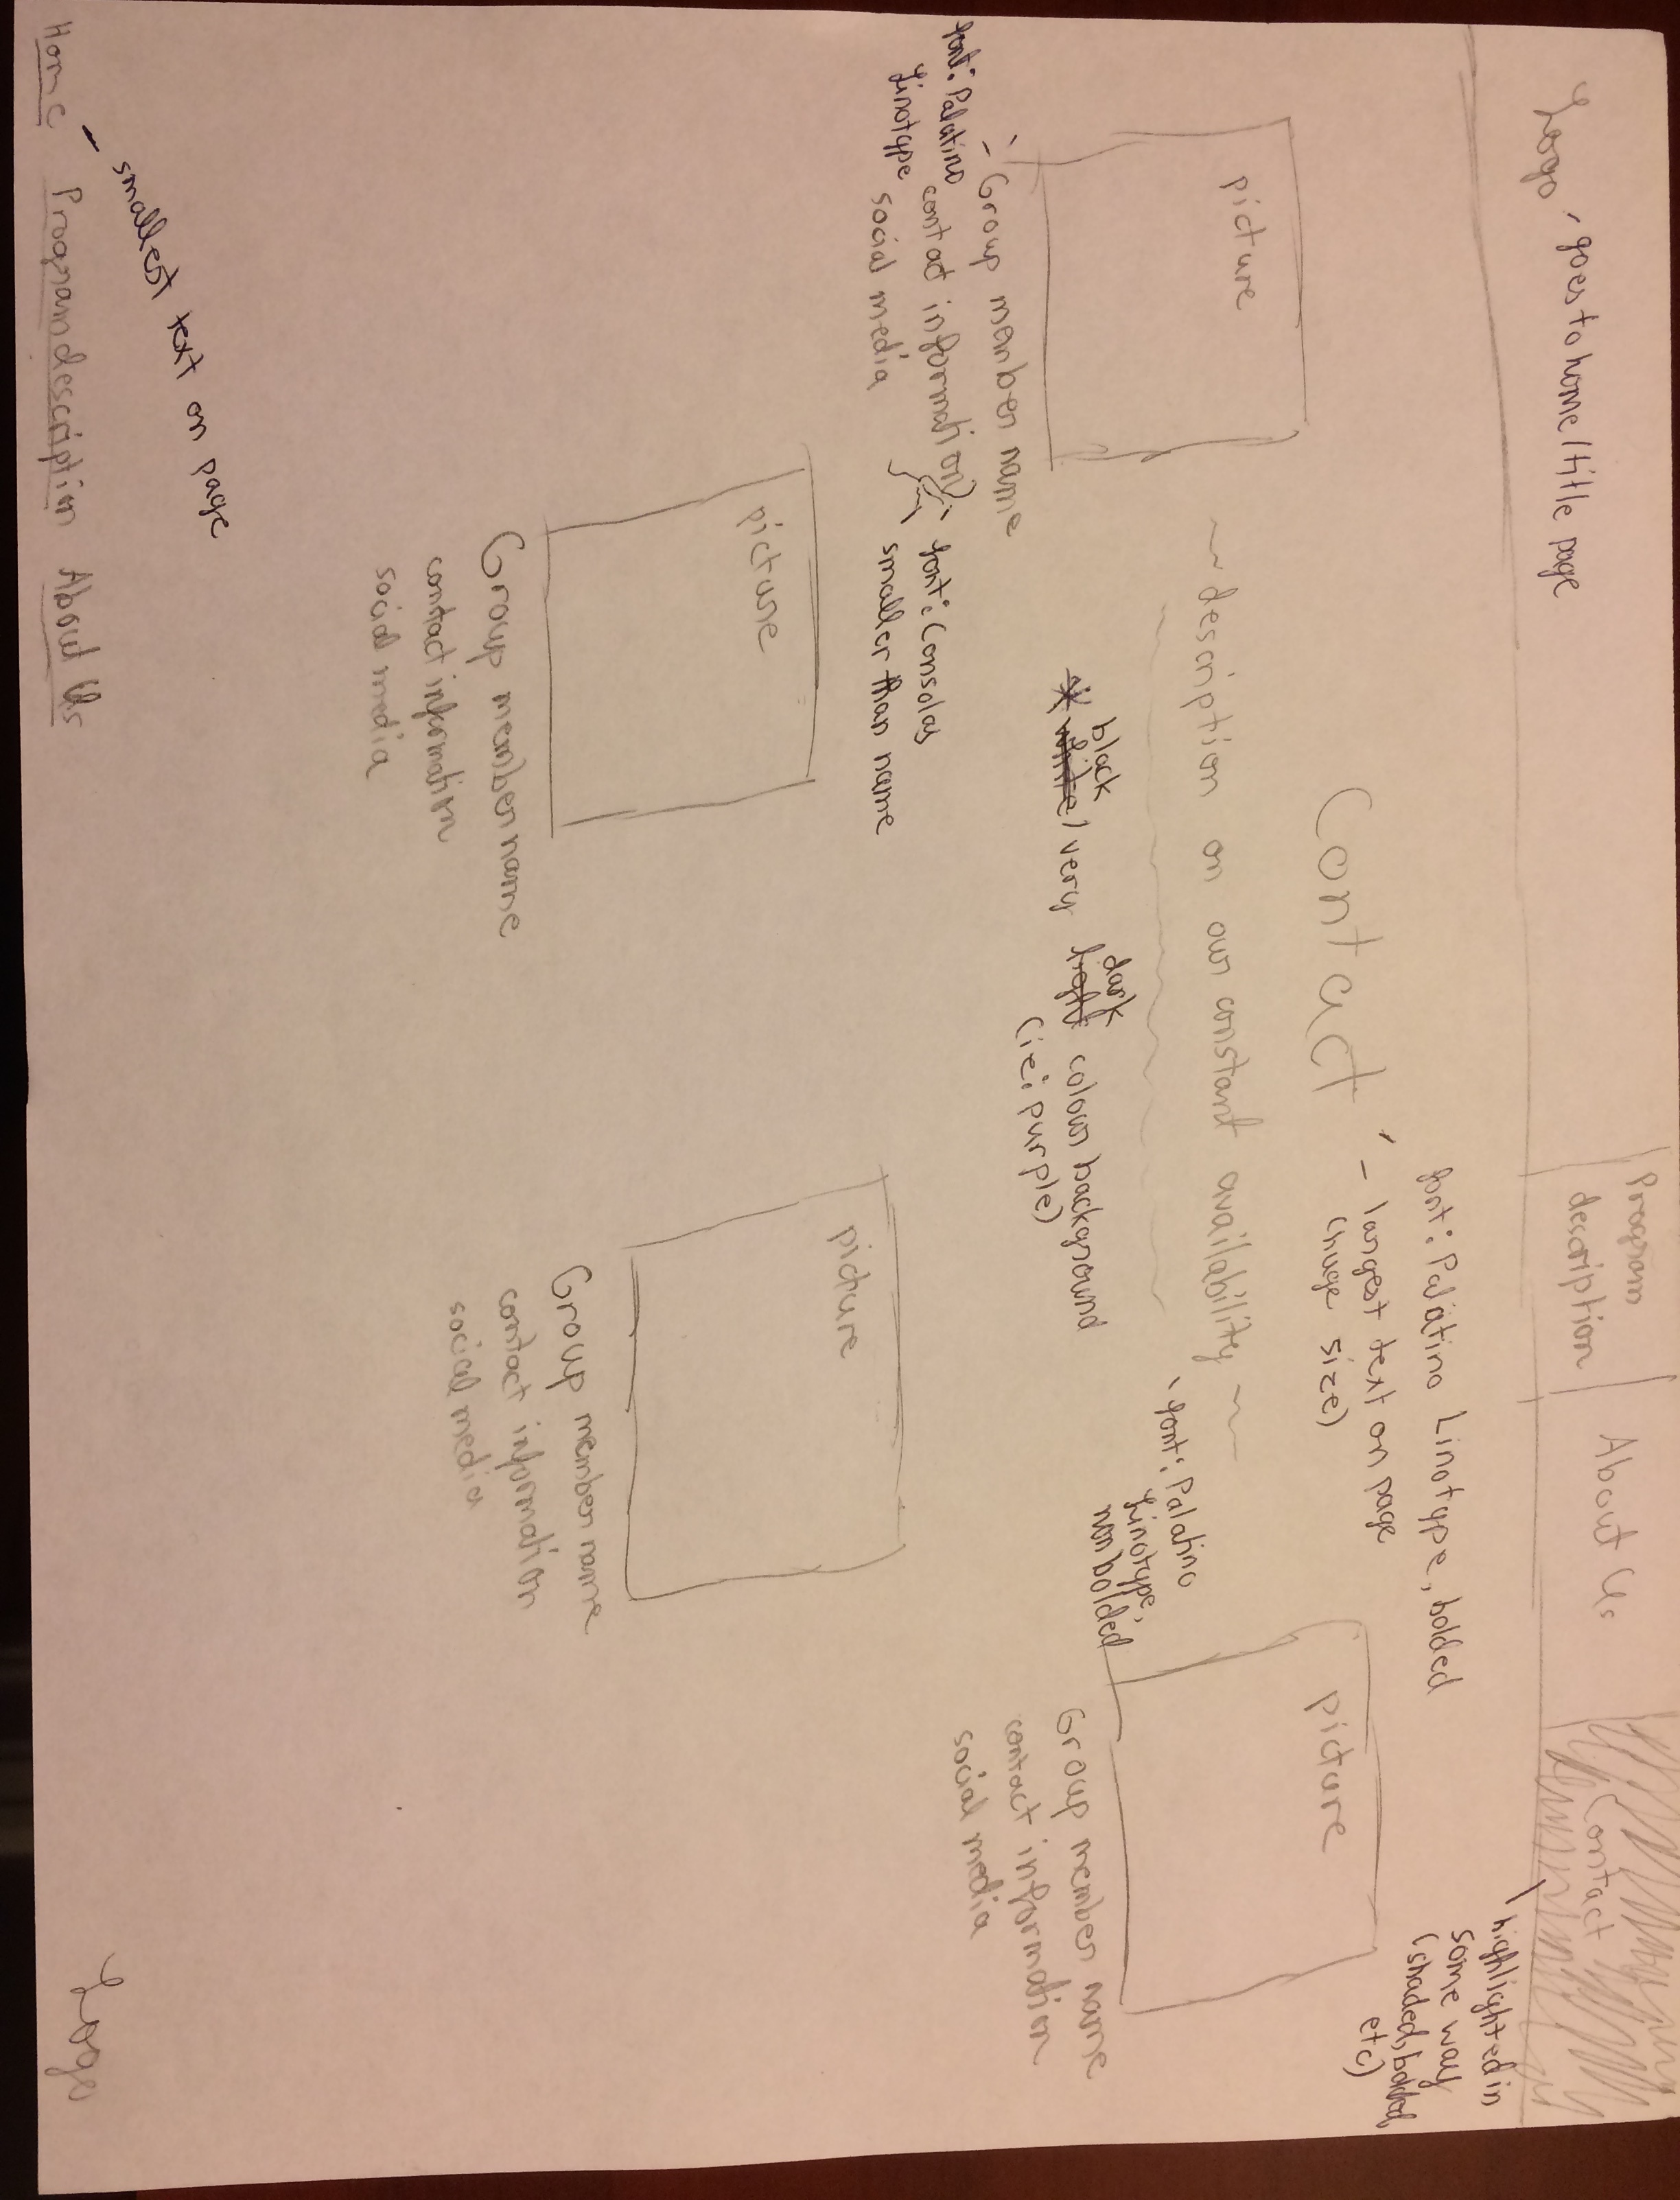 Logo - goes to home/title page
Program
description
About Us
Contact
highlighted in
some way
(shaded, bolded,
etc)
font: Palatino Linotype, bolded
- largest text on page
(huge size)
Contact
picture
picture
~ description on our constant availability ~
font: Palatino
Linotype,
non bolded
black dark
* white / very light colour background
(ie: purple)
Group member name
contact information
social media
font: Palatino
Linotype
font: Consolas
smaller than name
Group member name
contact information
social media
picture
Group member name
contact information
social media
picture
Group member name
contact information
social media
- smallest text on page
Home Program description About Us
Logo